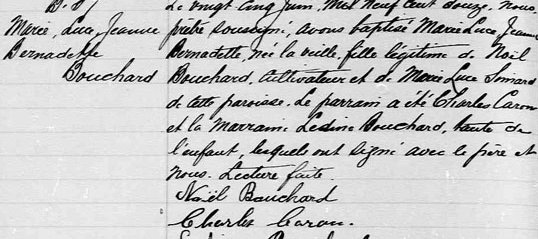 B. 
Marie, Luce, Jeanne
Bernadette
Bouchard
Le vingt cinq juin, mil neuf cent douze, nous,
prêtre soussigné, avons baptisé Marie Luce Jeanne
Bernadette, née la veille, fille légitime de Noël
Bouchard, cultivateur et de Marie Luce Simard
de cette paroisse. Le parrain a été Charles Caron
et la Marraine Bouchard, tante de
l'enfant, lesquels ont signé avec le père et
nous. Lecture faite.
Noël Bouchard
Charles Caron.